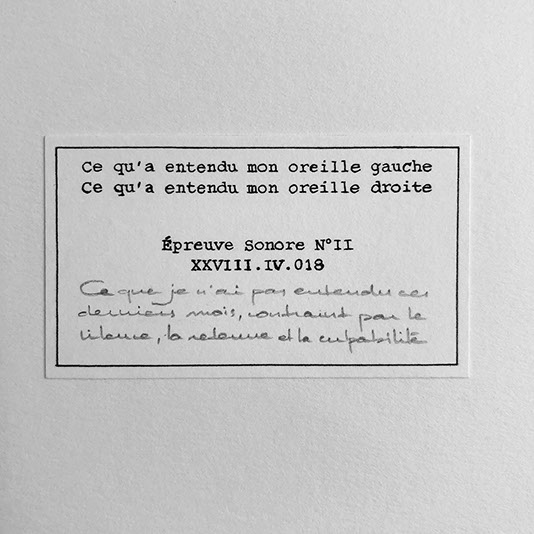 Ce qu'a entendu mon oreille gauche
Ce qu'a entendu mon oreille droite
Épreuve Sonore N°II
XXVIII.IV.018
Ce que je n'ai pas entendu ces
derniers mois, contraint par le
silence, la retenue et la culpabilité